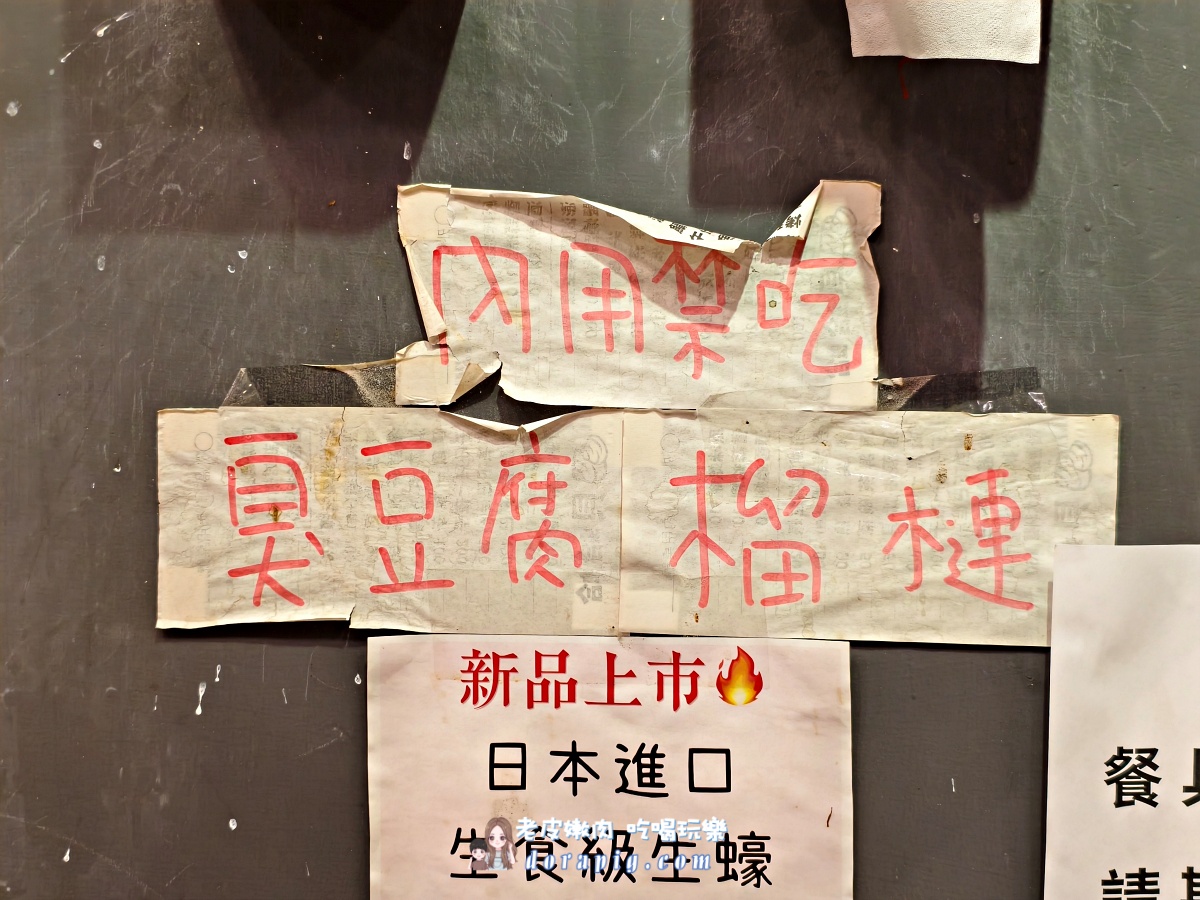 內用禁吃
臭豆腐 榴槤
新品上市🔥
日本進口
生食級生蠔
老皮嫩肉 吃喝玩樂
dorapig.com
餐具
請